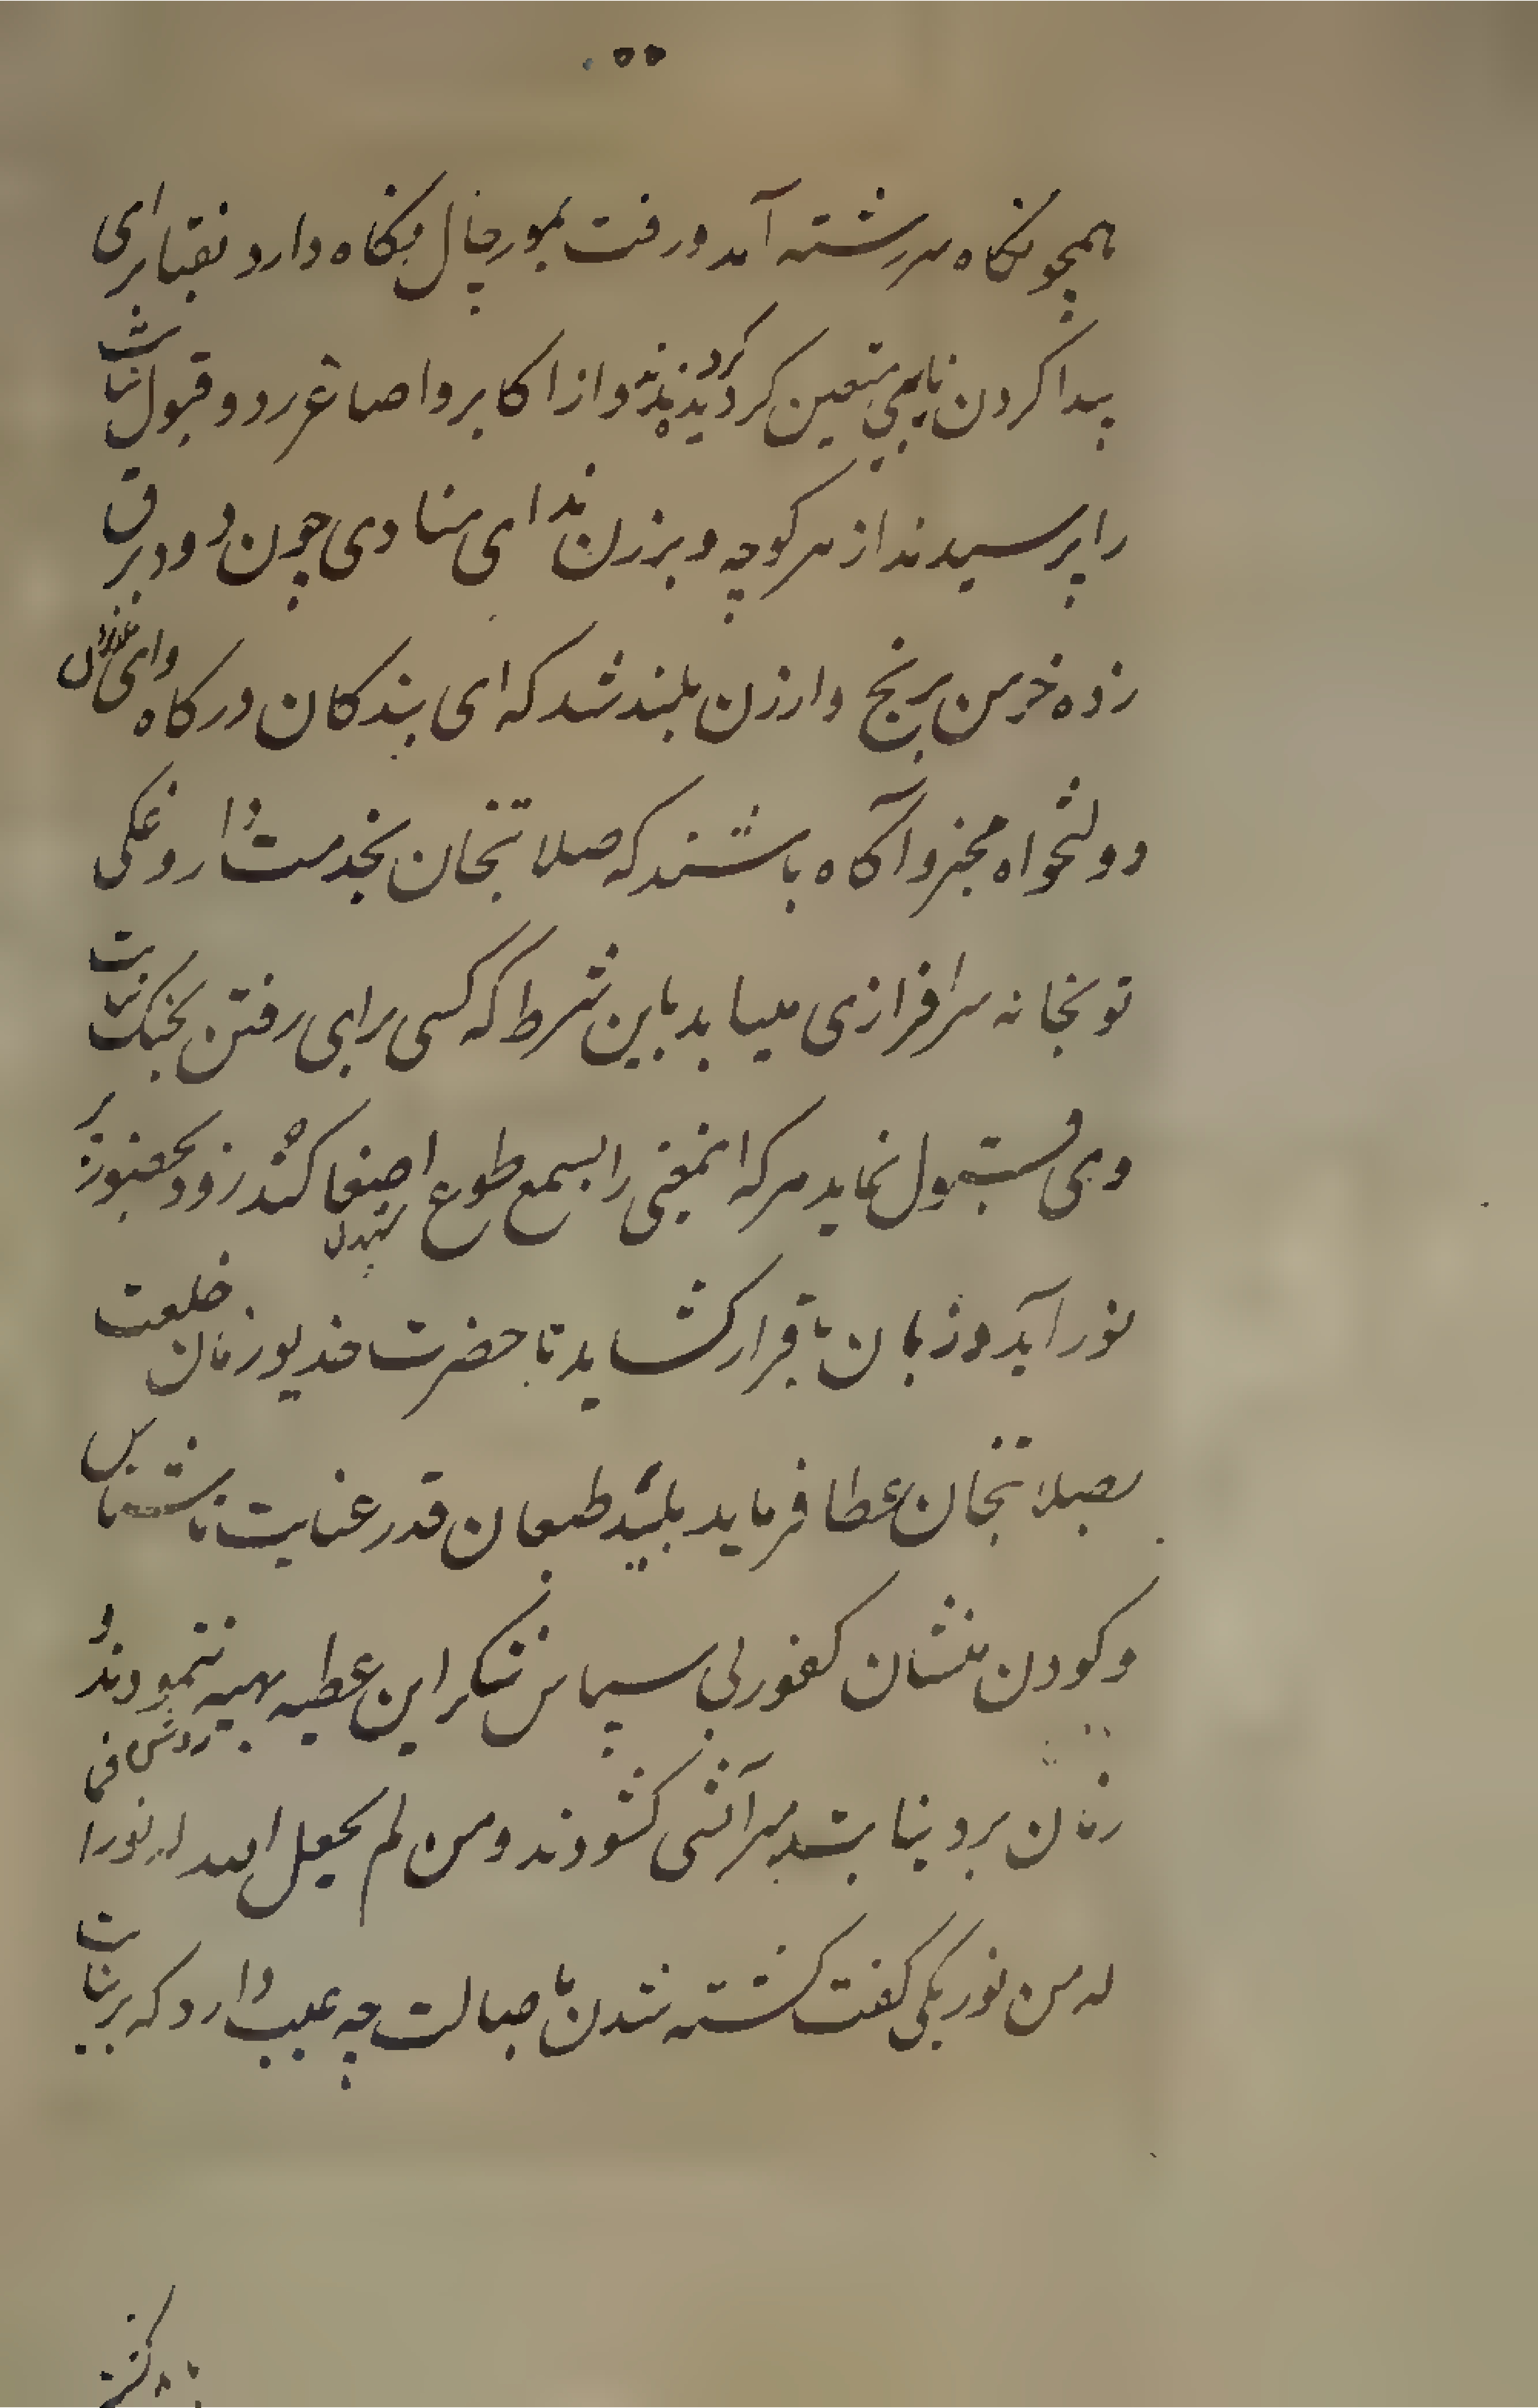 همچو نکاه سررشته آمد و رفت بمورچال نکاه دارد نقبا برای
پیدا کردن نایبی متعین کردیدند و از اکابر و اصاغر رد و قبول نیابت
را پرسیدند از هر کوچه و برزن ندای منادی چون دود برق
زده خرمن برنج و ارزن بلند شد که ای بندکان درکاه وای
دولتخواه مخبر و آکاه باشند که صلابتخان بخدمت داروغکی
توبخانه سرافرازی مییابد باین شرط که کسی برای رفتن بجنک نیابت
وی قبول نماید هر که اینمعنی را بسمع طوع اصغا کند زود بحضور پر
نور آید و زبان باقرار کشاید تا حضرت خدیو زمان خلعت
بصلابتخان عطا فرماید بلید طبعان قدر عنایت ناشناس
و کودن منشان کفور بی سپاس شکر این عطیه بهیه ننمودند و
زمان برد نیابت میرآتشی کشودند و من لم یجعل الله له نورا
له من نور یکی کفت کشته شدن باصالت چه عیب دارد که بر نیابت